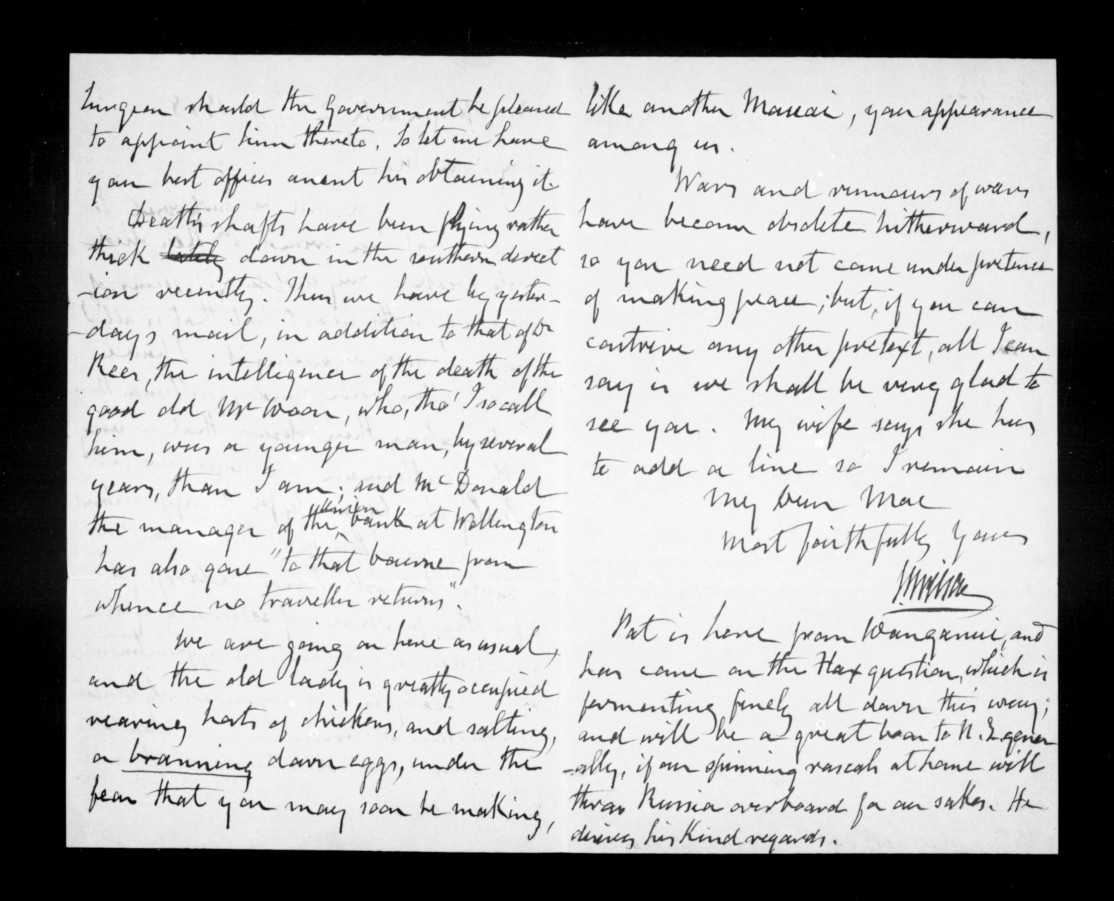 Surgeon should the Government be pleased
to appoint him thereto. So let me have
your best offices anent his obtaining it
Death's shafts have been flying rather
thick lately down in the southern direct
-ion recently. Thus we have by yester-
-day's mail, in addition to that of Dr
Rees, the intelligence of the death of the
good old Mr Woon, who, tho' I so call
him, was a younger man, by several
years, than I am; and Mc Donald
the manager of the Union bank at Wellington
has also gone "to that bourne from
whence no traveller returns".
We are going on here as usual,
and the old lady is greatly occupied
rearing hosts of chickens, and salting,
or branning down eggs, under the
fear that you may soon be making,
like another , your appearance
among us.
Wars and rumours of wars
have become obsolete hitherward,
so you need not come under pretence
of making peace; but, if you can
contrive any other pretext, all I can
say is we shall be very glad to
see you. My wife says she has
to add a line so I remain
My dear Mac
Most faithfully Yours
Pat is here from Wanganui, and
has come on the Flax question, which is
fermenting finely all down this way;
and will be a great boon to N. Z. gener
-ally, if our spinning rascals at home will
throw Russia overboard for our sakes. He
desires his kind regards.